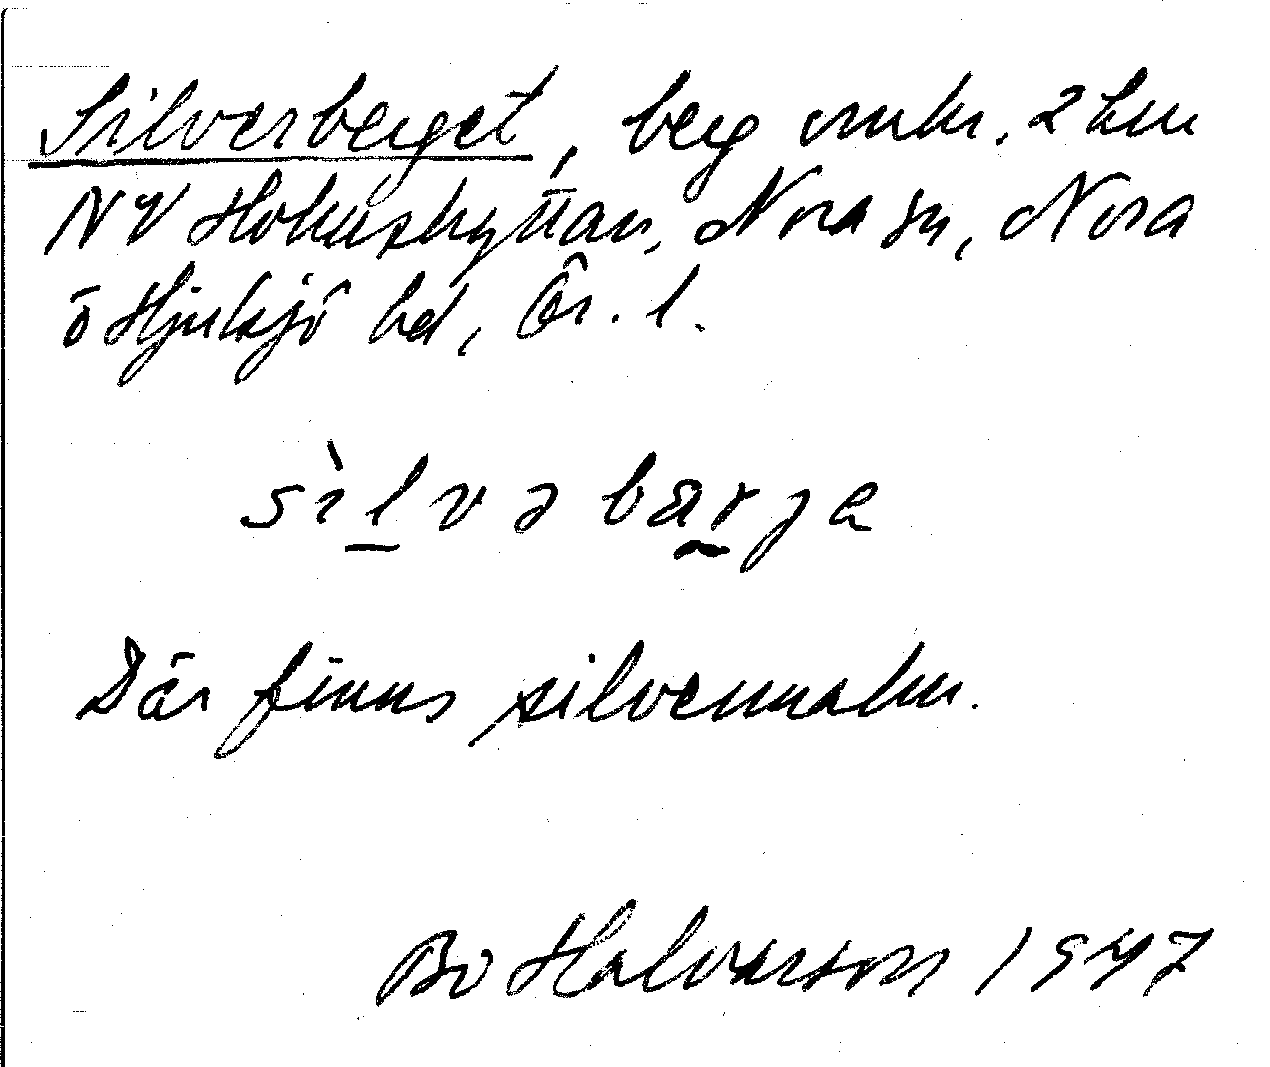 Silverberget, berg omkr. 2 km
NV Hokushyttan, Nora sn, Nora
o Hjulsjö bd, Ör. l.
sìlvəbärja
Där finns silvermalm.
Bo Halvarson 1947